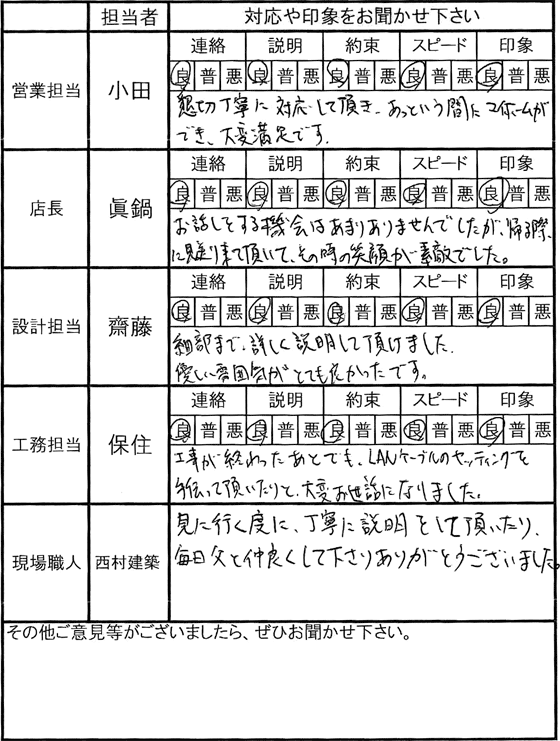 担当者 対応や印象をお聞かせ下さい
営業担当 小田
連絡 説明 約束 スピード 印象
良 普 悪 良 普 悪 良 普 悪 良 普 悪 良 普 悪
懇切丁寧に対応して頂き、あっという間にマイホームが
でき、大変満足です.
店長 眞鍋
連絡 説明 約束 スピード 印象
良 普 悪 良 普 悪 良 普 悪 良 普 悪 良 普 悪
お話しをする機会はあまりありませんでしたが、帰る際、
に見送り来て頂いて、その時の笑顔が素敵でした。
設計担当 齋藤
連絡 説明 約束 スピード 印象
良 普 悪 良 普 悪 良 普 悪 良 普 悪 良 普 悪
細部まで、詳しく説明して頂けました.
優しい雰囲気がとても良かったです。
工務担当 保住
連絡 説明 約束 スピード 印象
良 普 悪 良 普 悪 良 普 悪 良 普 悪 良 普 悪
工事が終わったあとでも、LANケーブルのセッティングを
手伝って頂いたりと、大変お世話になりました。
現場職人 西村建築
見に行く度に、丁寧に説明をして頂いたり、
毎日父と仲良くして下さりありがとうございました。
その他ご意見等がございましたら、ぜひお聞かせ下さい。